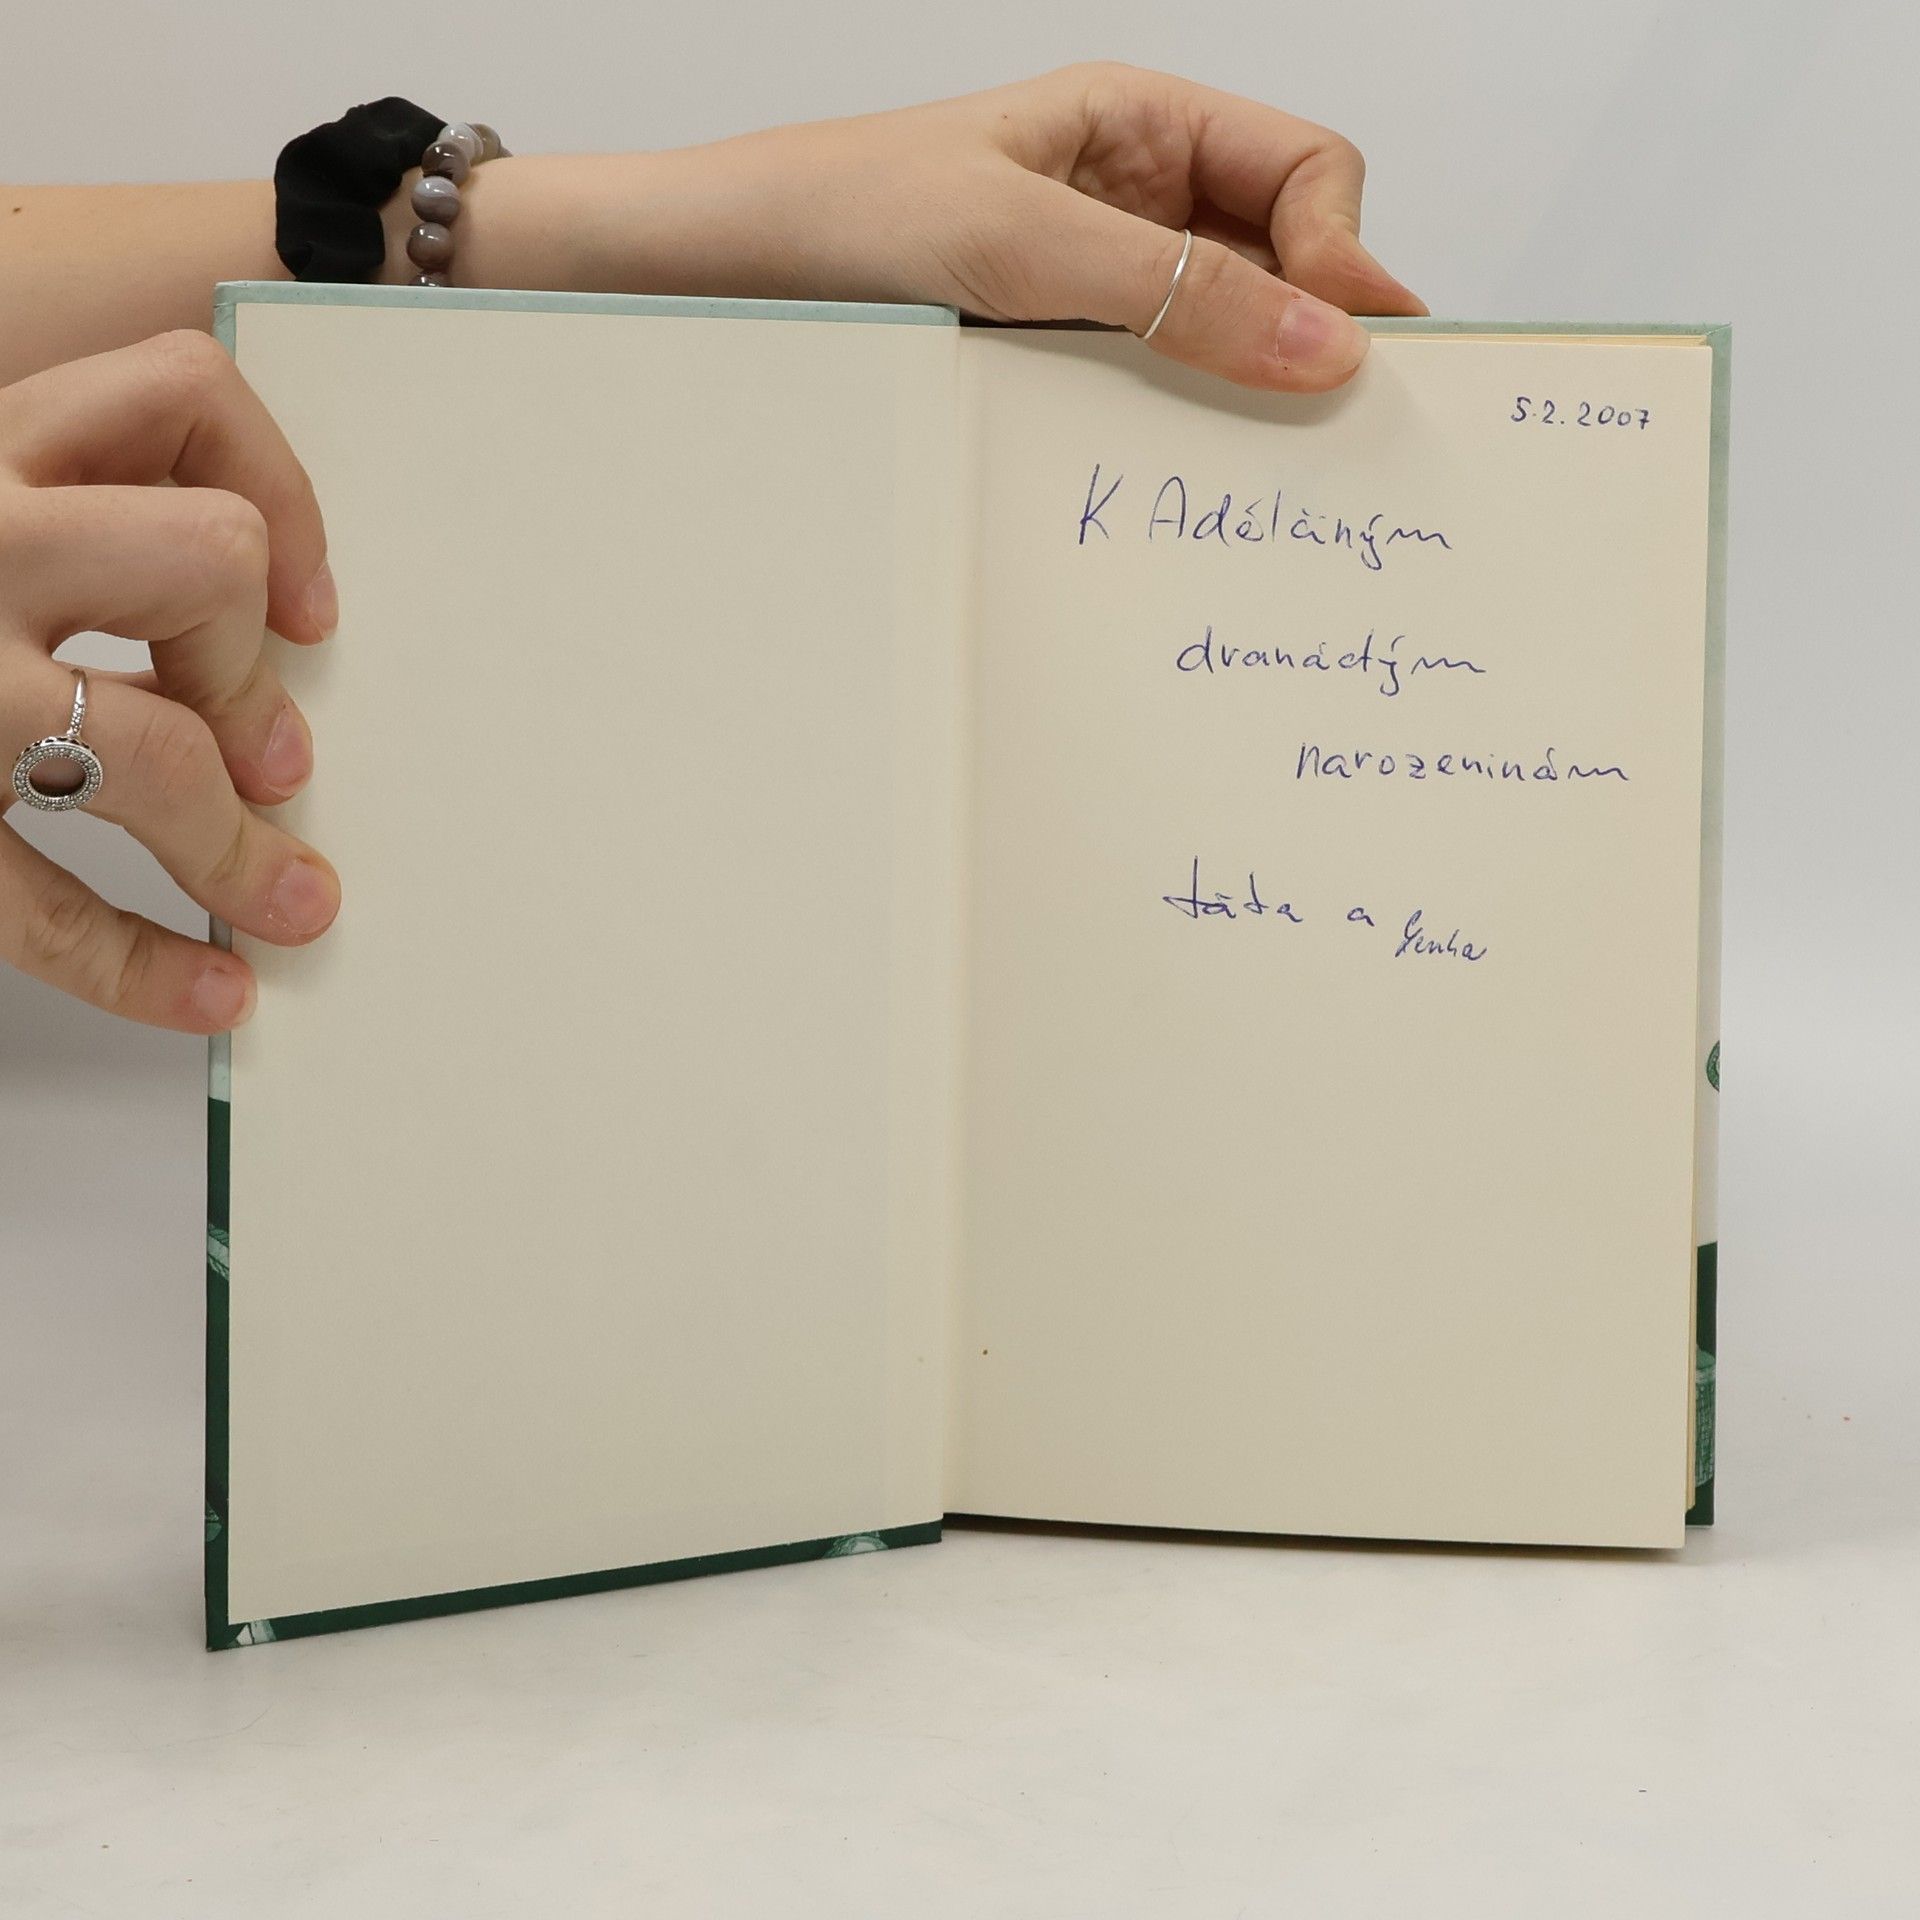 5.2.2007
K Adélčiným
dvanáctým
narozeninám
táta a Lenka